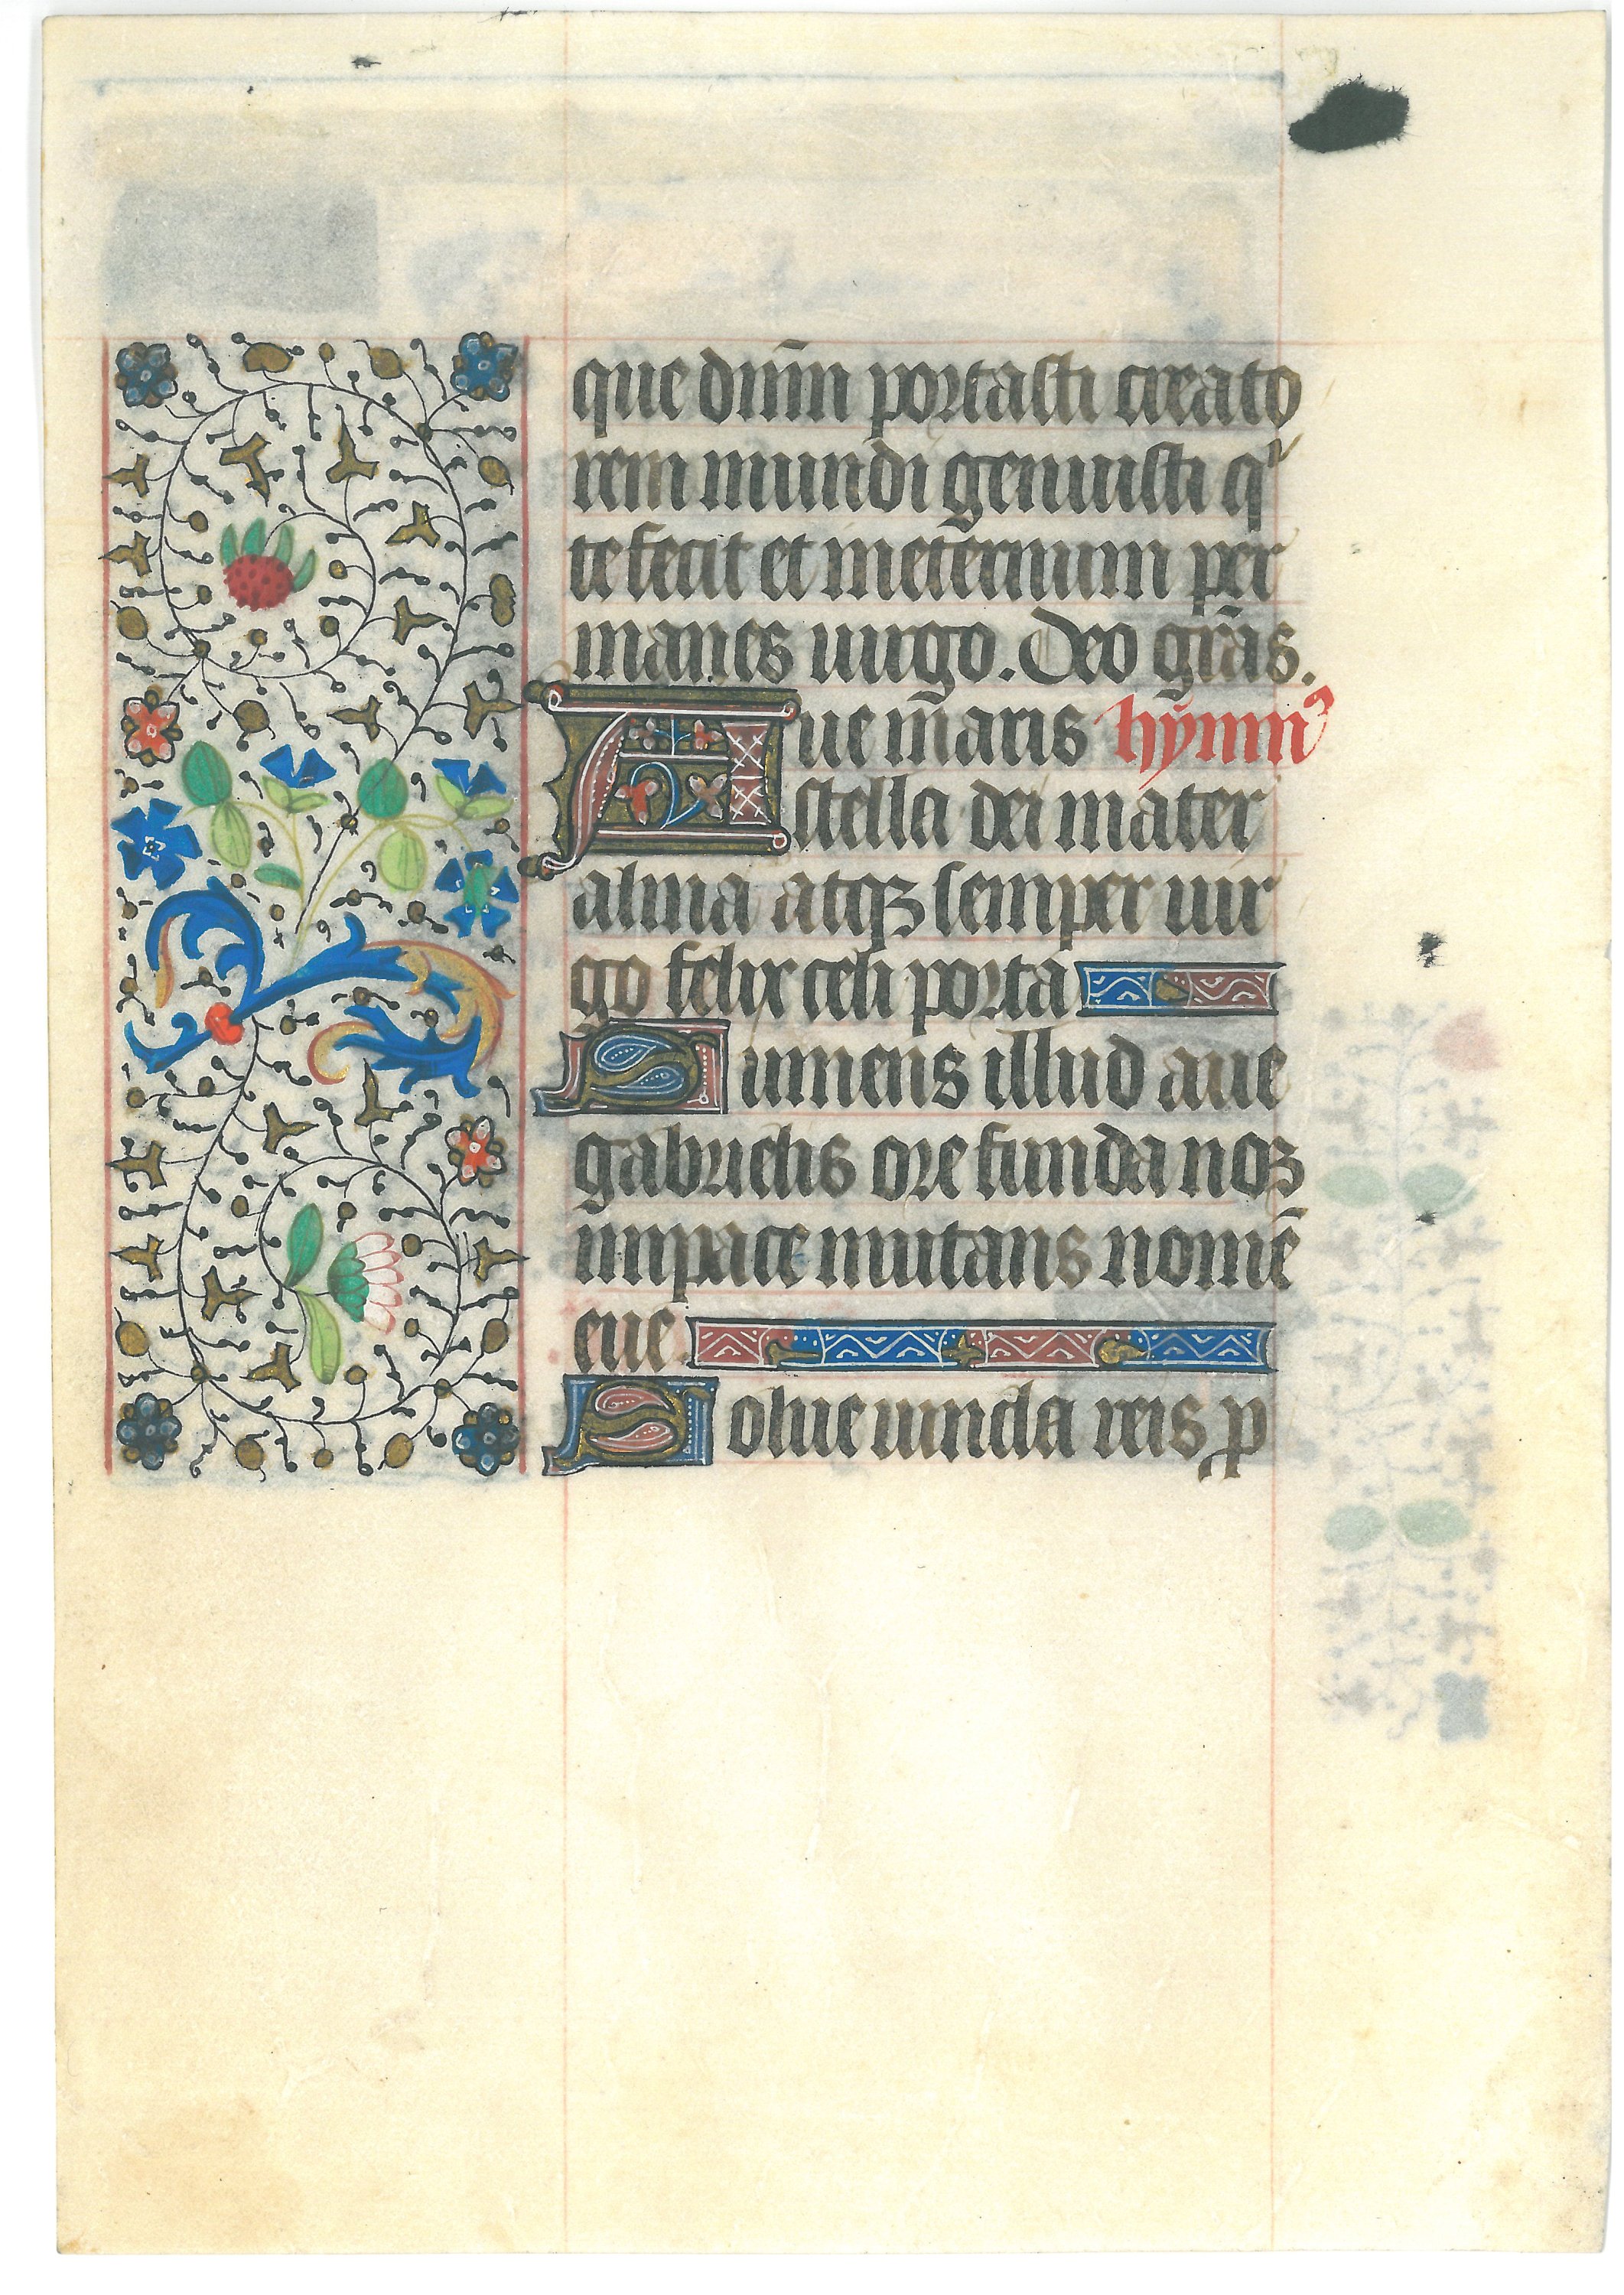 que dn̄m portasti creato
rem mundi genuisti qͥ
te fecit et ineternum per
manes uirgo. Deo gr̄as.
Aue maris hymnꝰ
stella dei mater
alma atqꝫ semper uir
go felix celi porta
Sumens illud aue
gabrielis ore funda noꝫ
inpace mutans nomē
eue.
Solue uincla reis p